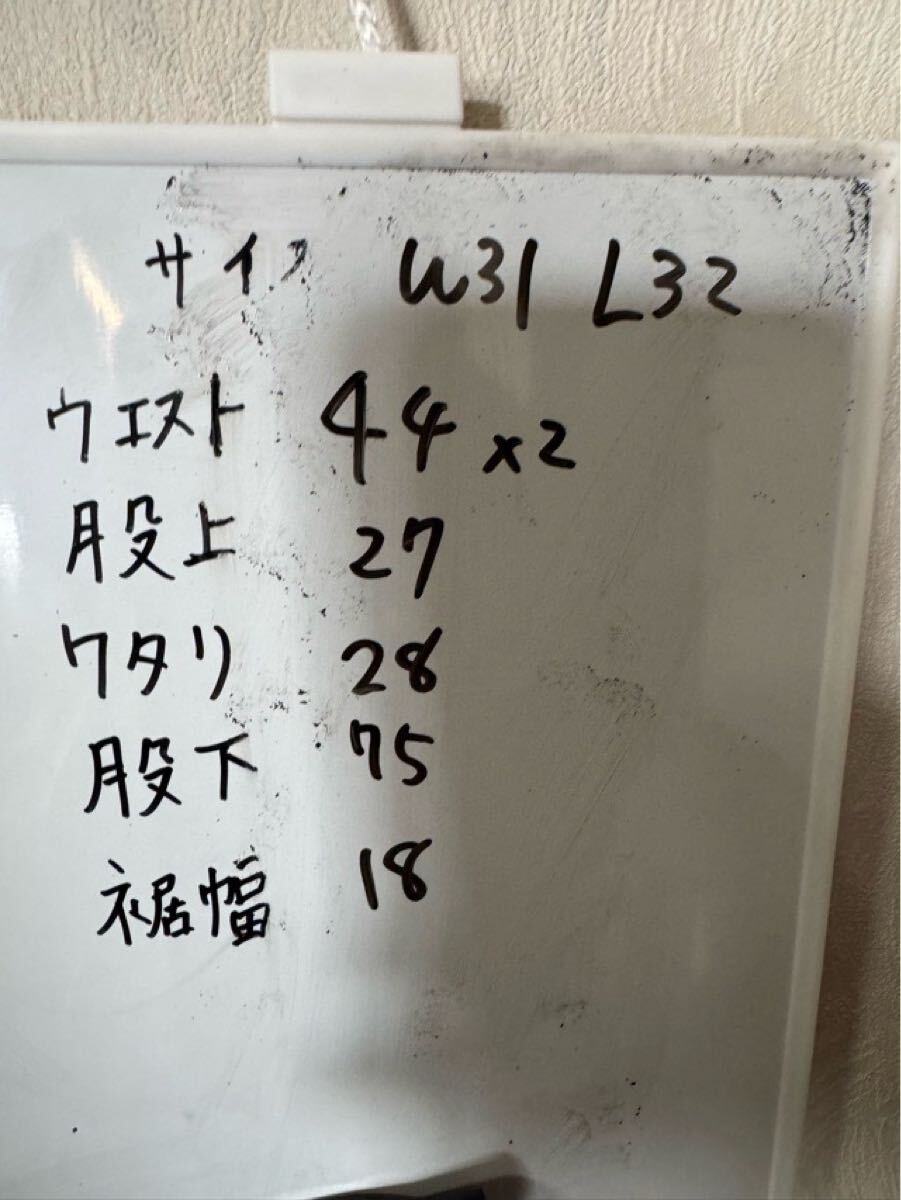 サイズ W31 L32
ウエスト 44 x2
股上 27
ワタリ 28
股下 75
裾幅 18